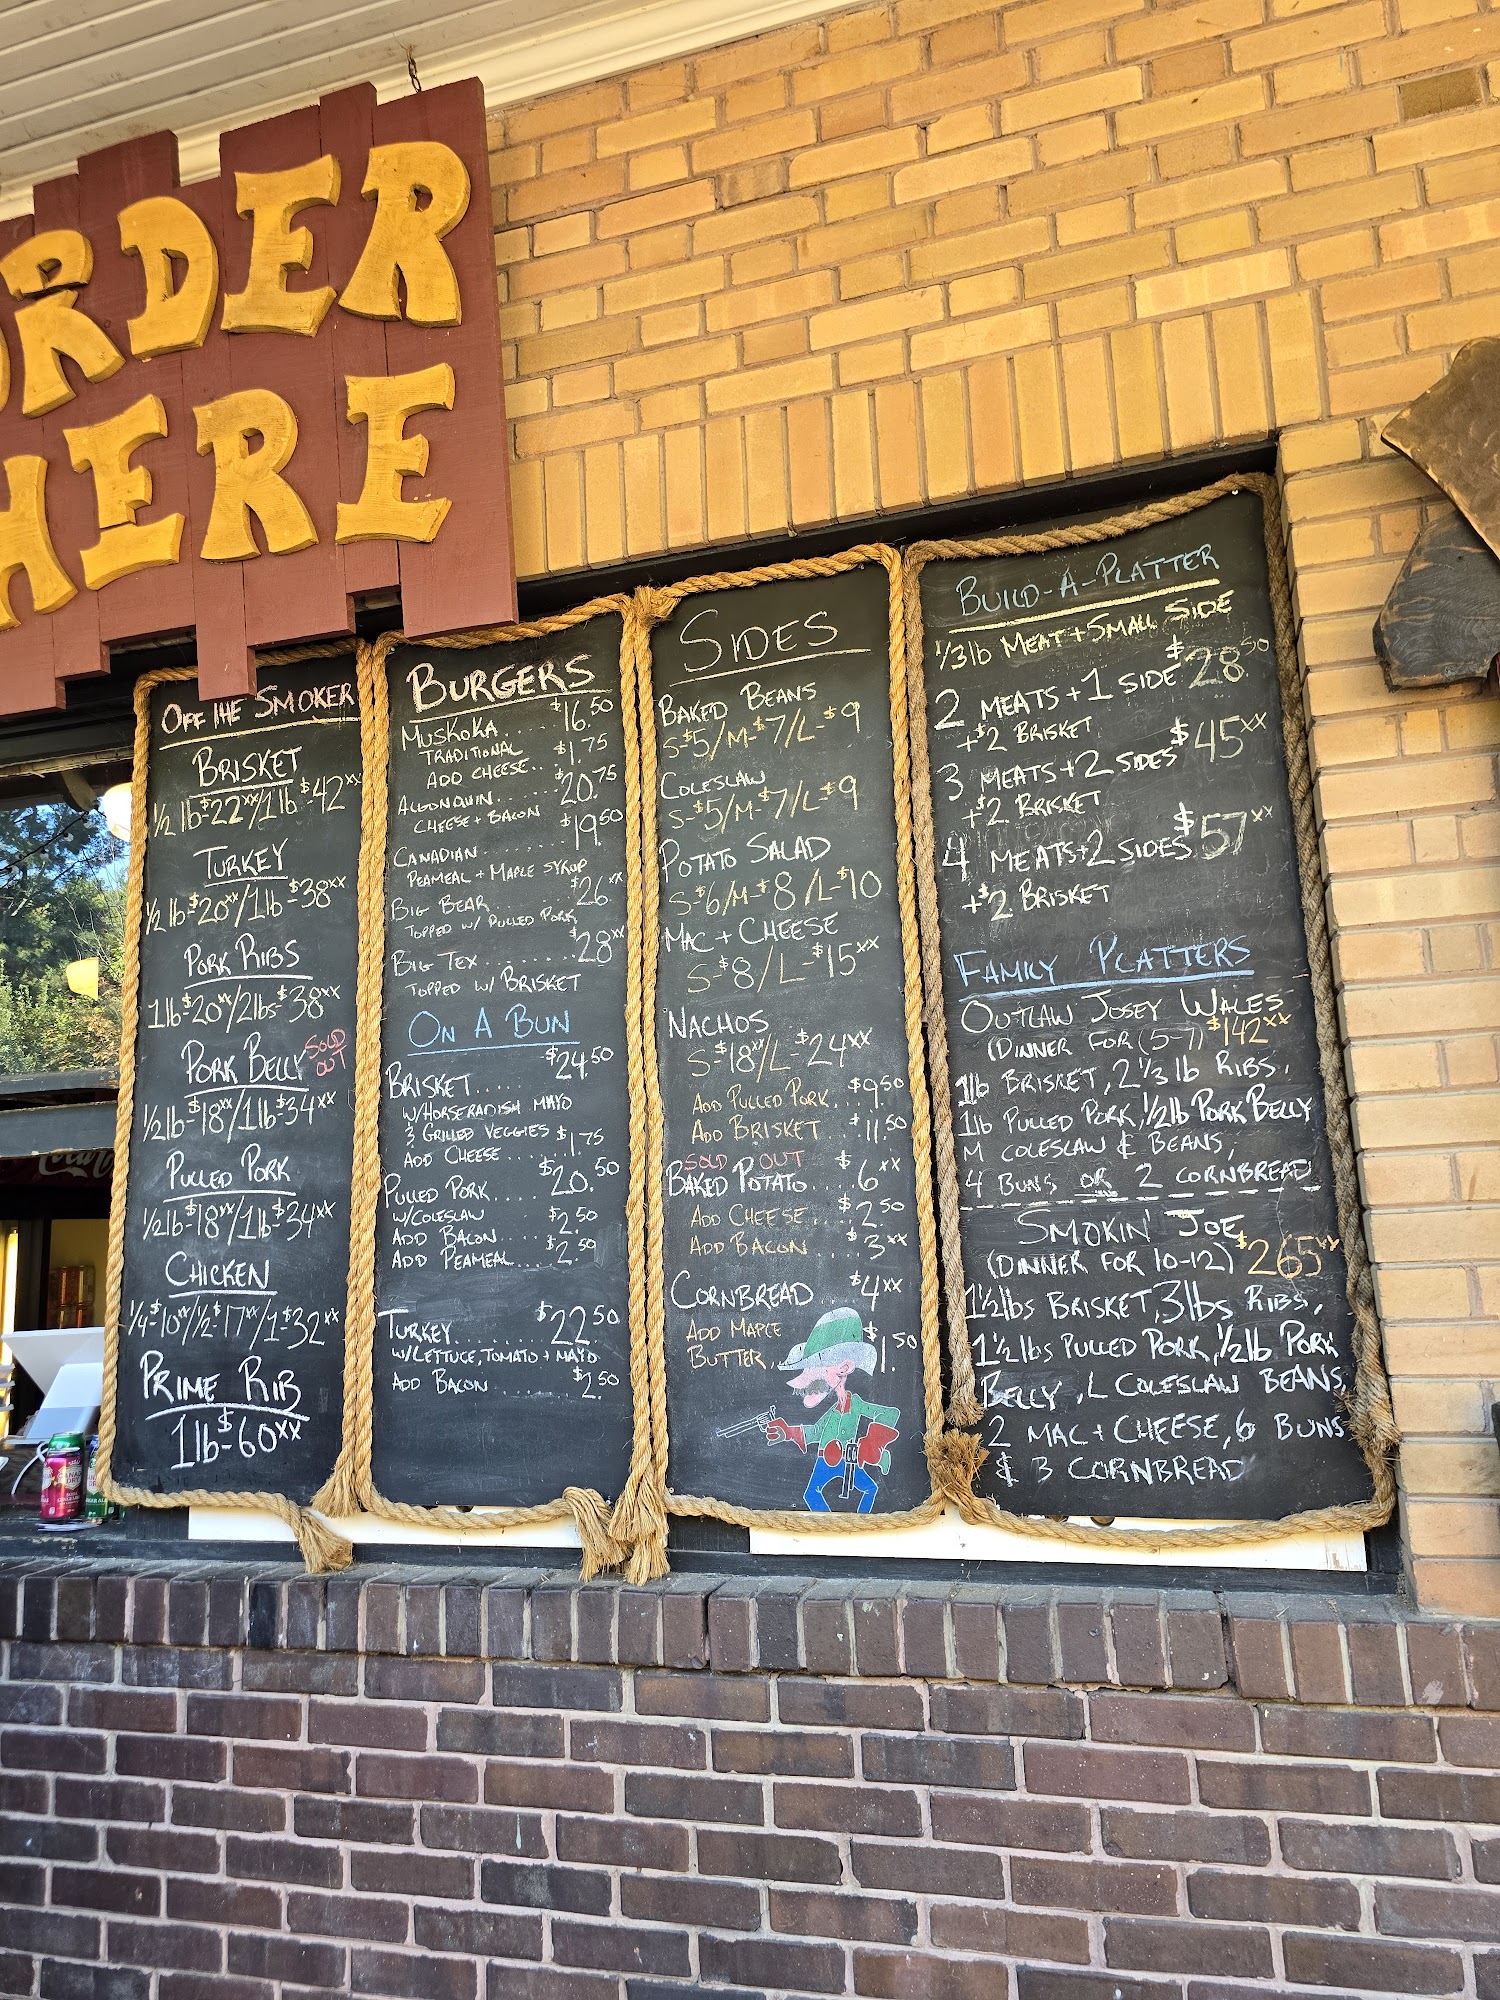 ORDER
HERE
OFF THE SMOKER
BRISKET
1/2 lb-$22xx/1lb-$42xx
TURKEY
1/2 lb-$20xx/1lb-$38xx
PORK RIBS
1lb-$20xx/2lbs-$38xx
PORK BELLY SOLD OUT
1/2lb-$18xx/1lb-$34xx
PULLED PORK
1/2lb-$18xx/1lb-$34xx
CHICKEN
1/4-$10xx/1/2-$17xx/1-$32xx
PRIME RIB
1lb-$60xx
BURGERS
MUSKOKA.....$16.50
TRADITIONAL
ADD CHEESE..$1.75
ALGONQUIN......$20.75
CHEESE + BACON
CANADIAN........$19.50
PEAMEAL + MAPLE SYRUP
BIG BEAR.......$26.xx
TOPPED W/ PULLED PORK
BIG TEX.........$28xx
TOPPED W/ BRISKET
ON A BUN
BRISKET.....$24.50
W/HORSERADISH MAYO
& GRILLED VEGGIES
ADD CHEESE...$1.75
PULLED PORK....$20.50
W/COLESLAW
ADD BACON.....$2.50
ADD PEAMEAL....$2.50
TURKEY.........$22.50
W/LETTUCE, TOMATO + MAYO
ADD BACON.........$2.50
SIDES
BAKED BEANS
S-$5/M-$7/L-$9
COLESLAW
S-$5/M-$7/L-$9
POTATO SALAD
S-$6/M-$8/L-$10
MAC + CHEESE
S-$8/L-$15xx
NACHOS
S-$18xx/L-$24xx
ADD PULLED PORK..$9.50
ADD BRISKET...$11.50
SOLD OUT
BAKED POTATO....$6xx
ADD CHEESE....$2.50
ADD BACON....$3xx
CORNBREAD $4xx
ADD MAPLE
BUTTER..$1.50
BUILD-A-PLATTER
1/3lb MEAT + SMALL SIDE
2 MEATS + 1 SIDE $28.50
+$2 BRISKET
3 MEATS + 2 SIDES $45xx
+$2 BRISKET
4 MEATS + 2 SIDES $57xx
+$2 BRISKET
FAMILY PLATTERS
OUTLAW JOSEY WALES
(DINNER FOR (5-7) $142xx
1lb BRISKET, 2 1/3 lb RIBS,
1lb PULLED PORK, 1/2lb PORK BELLY
M COLESLAW & BEANS,
4 BUNS OR 2 CORNBREAD
SMOKIN' JOE
(DINNER FOR 10-12) $265xx
1 1/2lbs BRISKET, 3lbs RIBS,
1 1/2lbs PULLED PORK, 1/2lb PORK
BELLY, L COLESLAW BEANS,
2 MAC + CHEESE, 6 BUNS
& 3 CORNBREAD